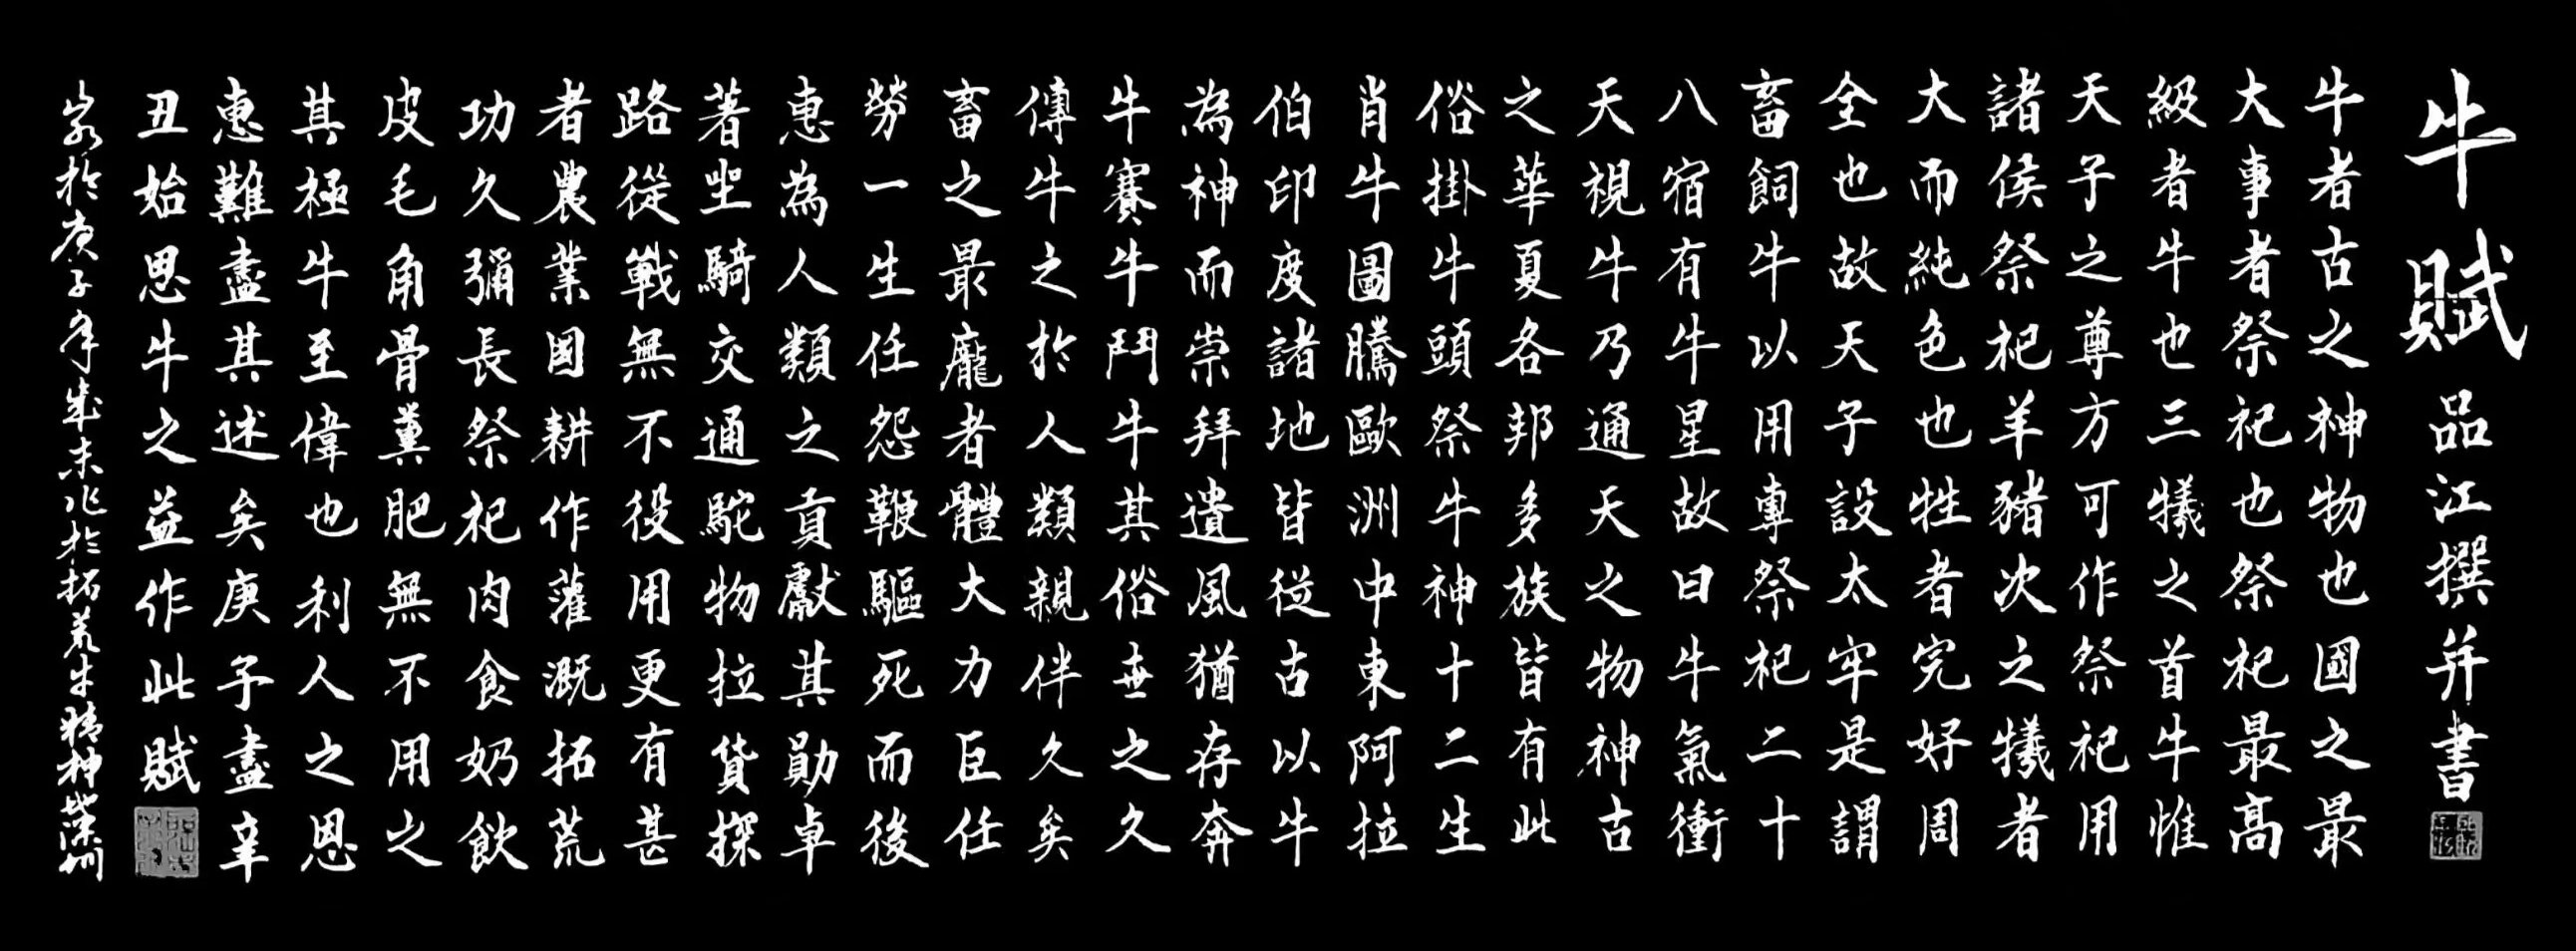 牛賦 品江撰并書
牛者古之神物也國之最
大事者祭祀也祭祀最高
級者牛也三犧之首牛惟
天子之尊方可作祭祀用
諸侯祭祀羊豬次之犧者
大而純色也牲者完好周
全也故天子設太牢是謂
畜飼牛以用專祭祀二十
八宿有牛星故曰牛氣衝
天視牛乃通天之物神古
之華夏各邦多族皆有此
俗掛牛頭祭牛神十二生
肖牛圖騰歐洲中東阿拉
伯印度諸地皆從古以牛
為神而崇拜遺風猶存奔
牛賽牛鬥牛其俗世之久
傳牛之於人類親伴久矣
畜之最龐者體大力巨任
勞一生任怨鞭驅死而後
惠為人類之貢獻其勛卓
著坐騎交通駝物拉貨探
路從戰無不役用更有甚
者農業國耕作灌溉拓荒
功久彌長祭祀肉食奶飲
皮毛角骨糞肥無不用之
其極牛至偉也利人之恩
惠難盡其述矣庚子盡辛
丑始思牛之益作此賦
於庚子年歲末於拓荒牛精神